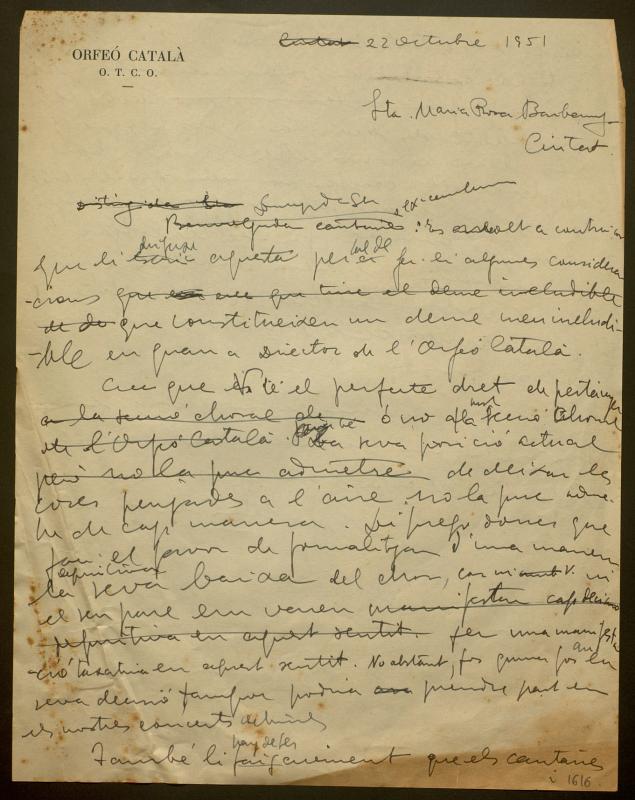 ORFEÓ CATALÀ
O. T. C. O.
22 octubre 1951
Sta. Maria Rosa Barbany
Ciutat
distingida Sta
Benvolguda cantaire : Es
dirigir
que li aquesta per fer-li algunes considera
-cions que el deure ineludible
que constitueixen un deure meu ineludi-
-ble en quan a Director de l'Orfeó Català.
Crec que Vè té el perfecte dret de pertànyer
a la secció choral de ó no a la nostra secció choral
de l'Orfeó Català la seva posició actual
però no la puc admetre de deixar les
coses penjades a l'aire no la puc adme-
tre de cap manera. Li prego doncs que
faci el favor de formalitzar d'una manera
definitiva
la seva baixa del chor, car ni V. ni
el seu pare em varen manifestar cap decisió
definitiva en aquest sentit. fer una manifesta
ció taxativa en aquest sentit. No obstant, fos quina fos la
seva decisió tampoc podria prendre part en
els nostres concerts
També li haig de fer que els cantaires
i 1616